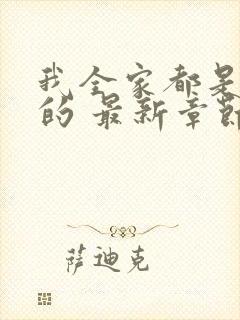 我全家都是
的 最新章节
萨迪克